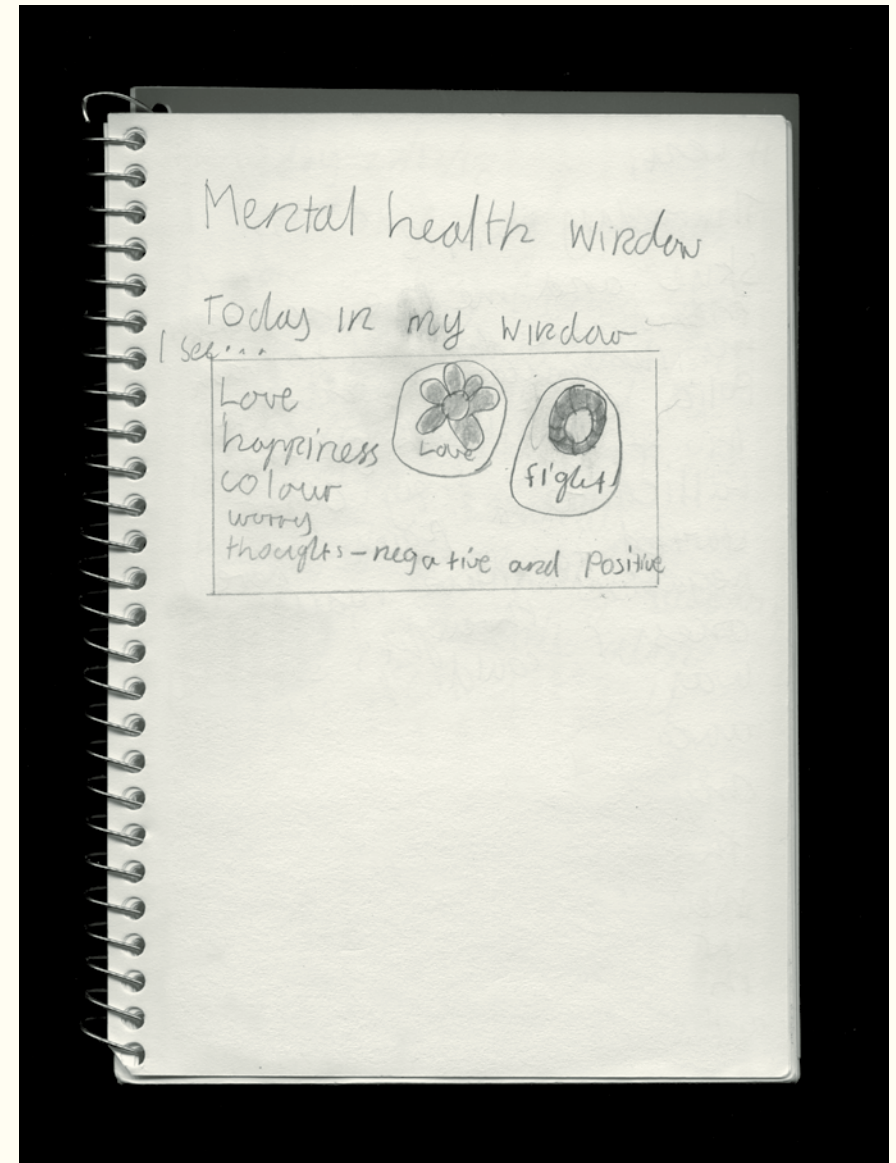 Mental health window
Today in my window
I see...
Love
happiness
colour
worry
thoughts - negative and Positive
Love
fight